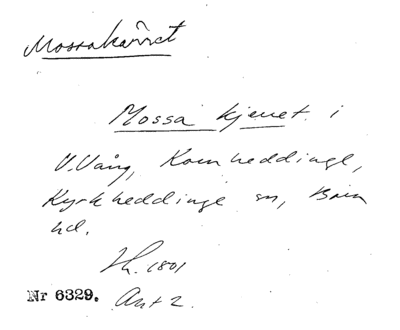 Mossakärret
Mossa kjerret i
V. Vång, Kornheddinge,
Kyrkheddinge sn, Bara
hd.
1801
Nr 6329. Akt 2.